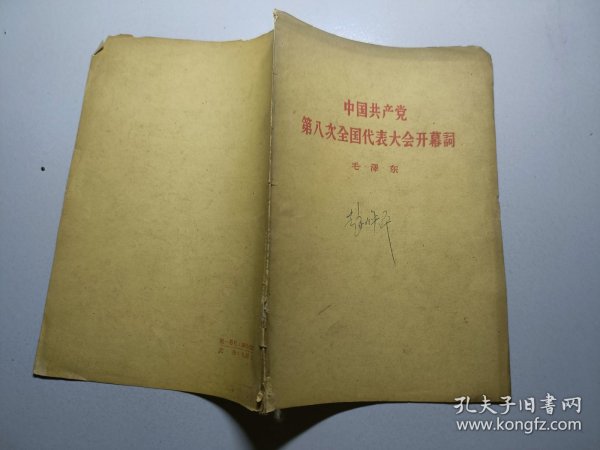 中国共产党
第八次全国代表大会开幕詞
毛 澤 东
孔夫子旧書网
www.kongfz.com